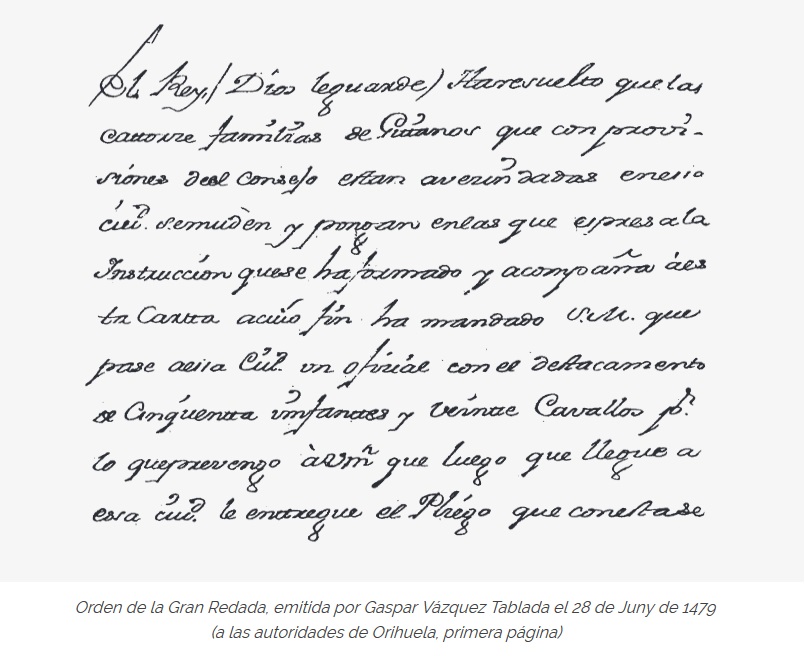 El Rey/ Dios le guarde) Ha resuelto que las
Cattorze familias de Gittanos que con provi-
siones deel Consejo estan avezindadas en essa
ciud. se muden y pongan en las que expresa la
Instrucción que se ha formado y acompaña à es
ta Cartta a cuio fin ha mandado S.M. que
pase a essa Ciud. un ofizial con el destacamento
de Cinquentta imfantes y veinte Cavallos pr.
lo que prevengo à Vm que luego que llegue a
essa ciud. le entregue el Pliego que con esta se
Orden de la Gran Redada, emitida por Gaspar Vázquez Tablada el 28 de Juny de 1479
(a las autoridades de Orihuela, primera página)